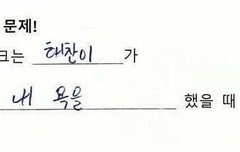 문제!
크는 태찬이 가
내 욕을 했을 때